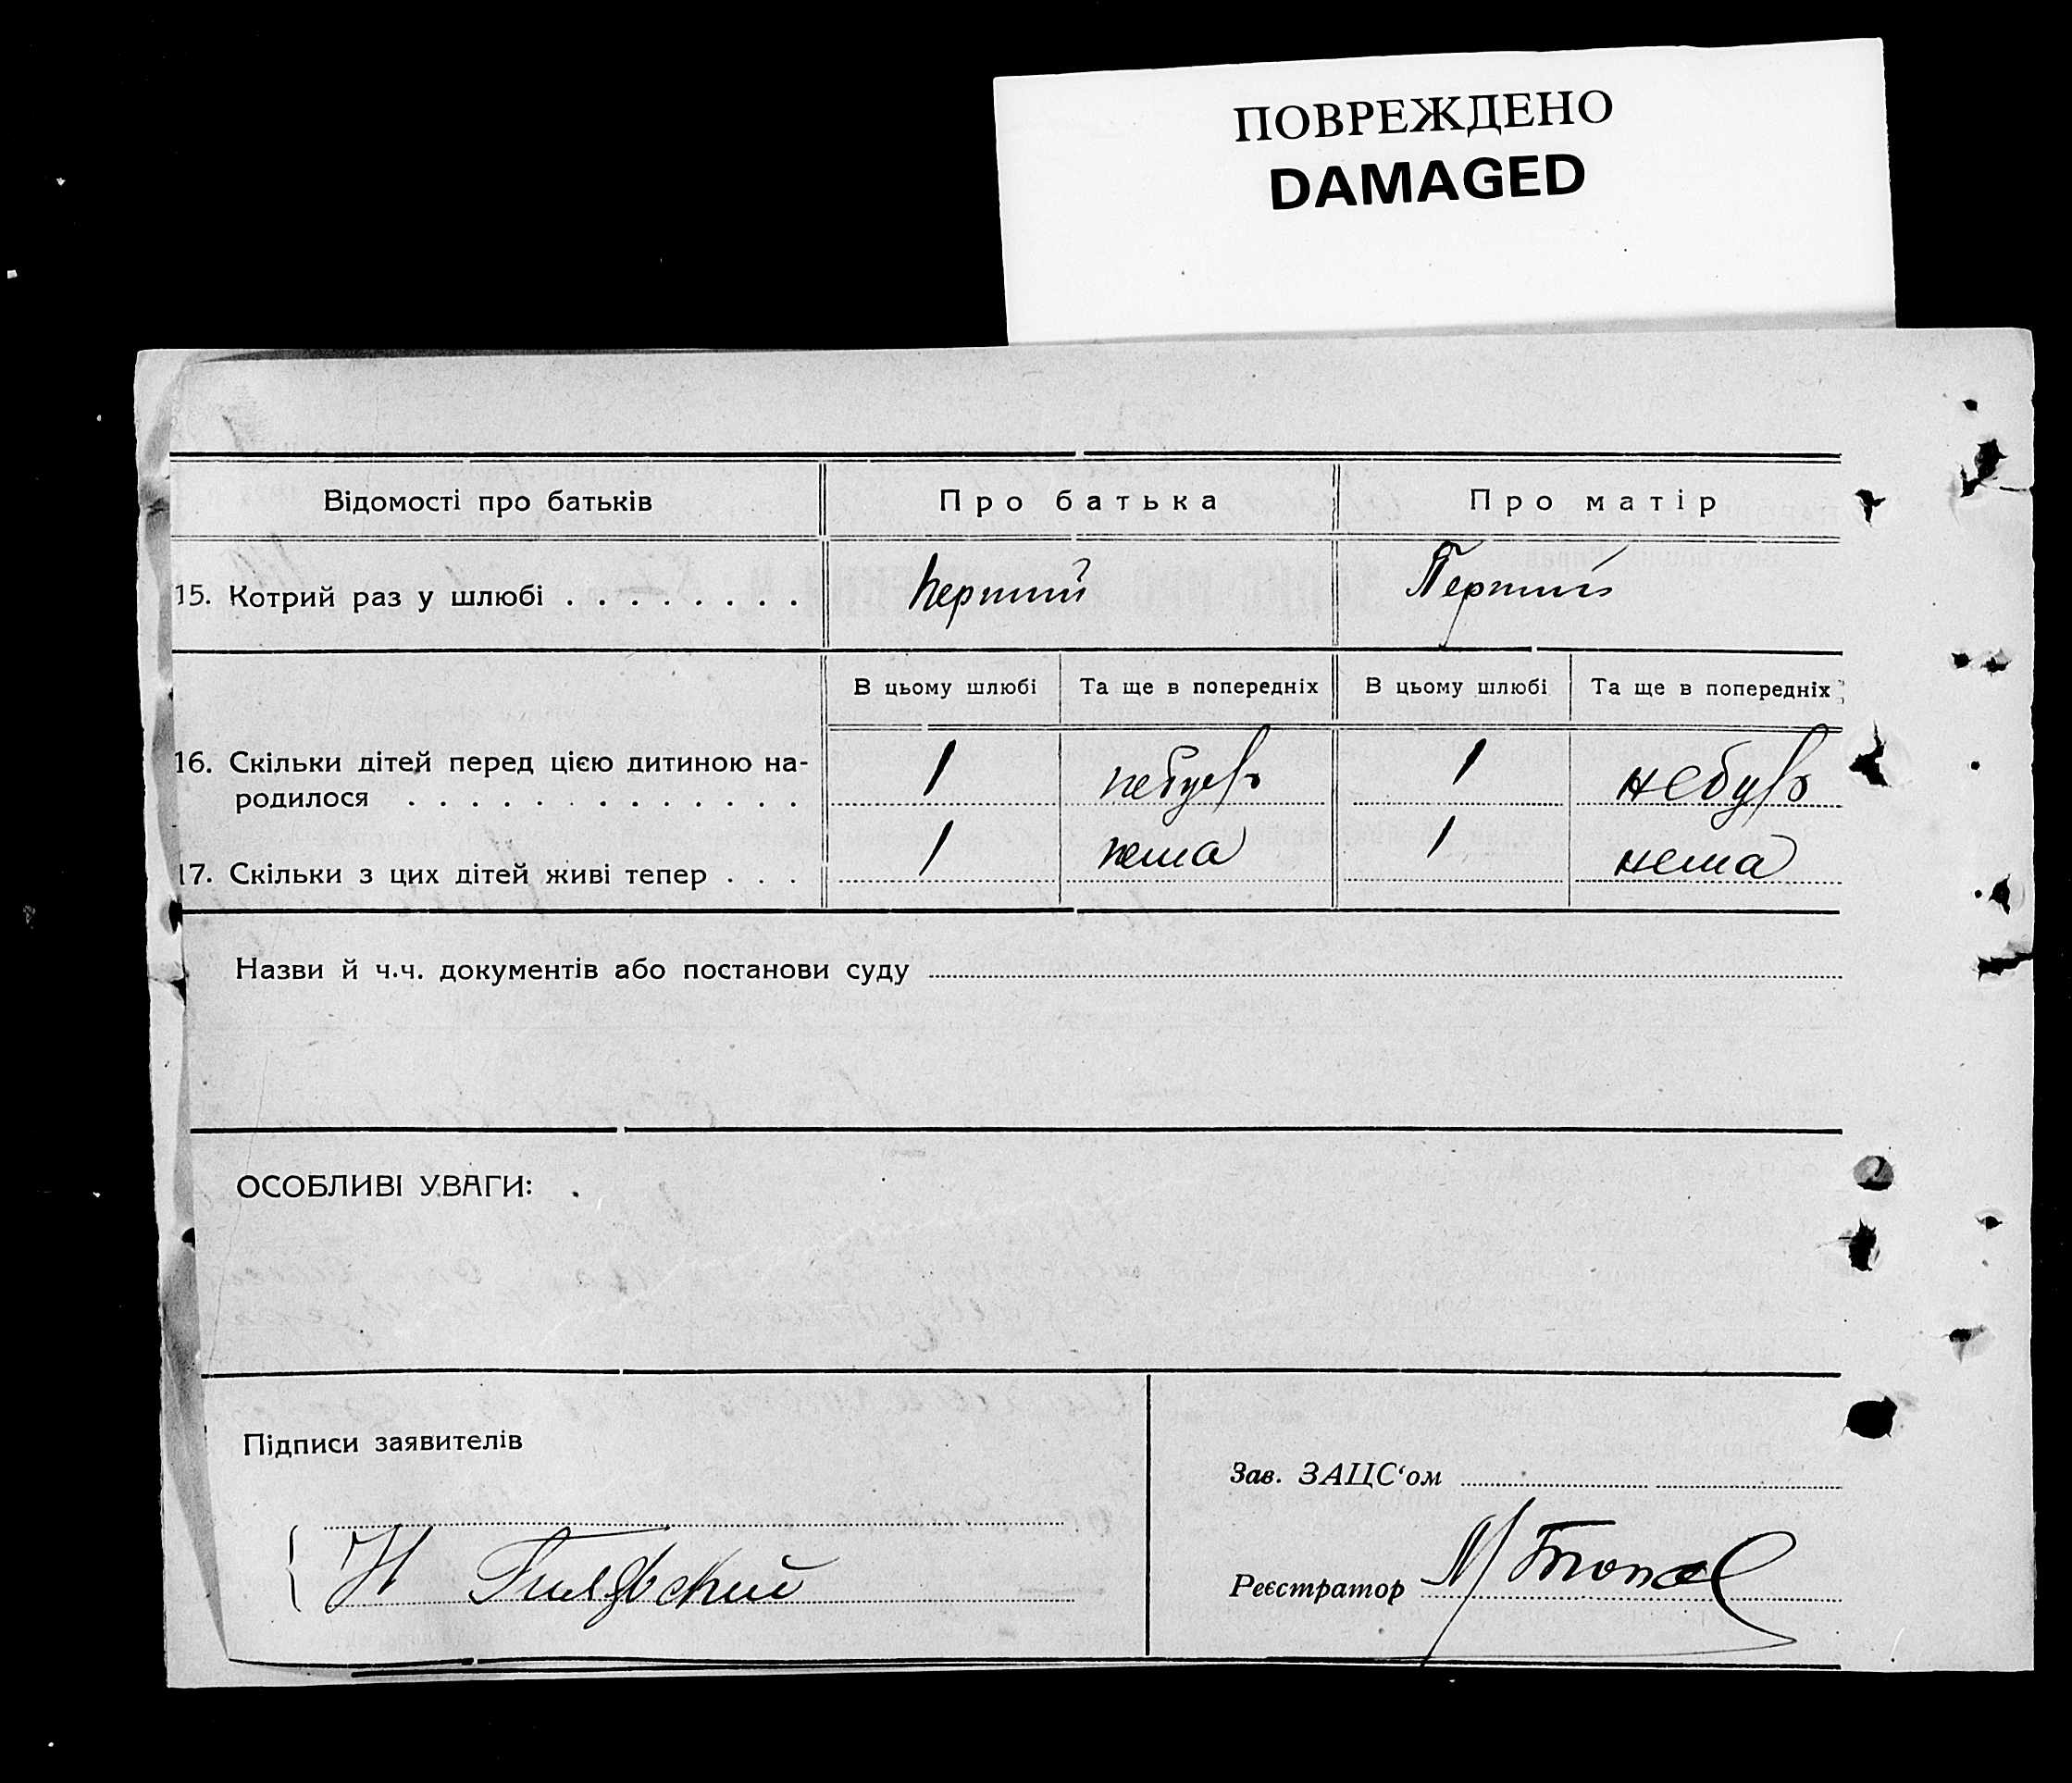 ПОВРЕЖДЕНО
DAMAGED
Відомості про батьків
Про батька
Про матір
15. Котрий раз у шлюбі
Перший
Перший
В цьому шлюбі
Та ще в попередніх
В цьому шлюбі
Та ще в попередніх
16. Скільки дітей перед цією дитиною на-
родилося
1
1
17. Скільки з цих дітей живі тепер
1
нема
1
нема
Назви й ч.ч. документів або постанови суду
ОСОБЛИВІ УВАГИ:
Підписи заявителів
Зав. ЗАЦС‘ом
Реєстратор